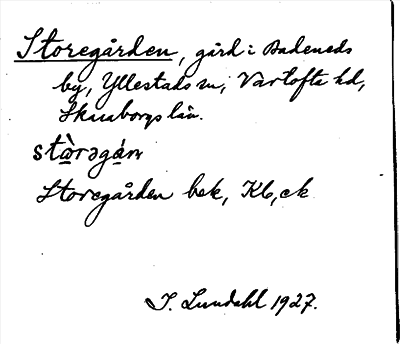 Storegården, gård i Badeneds
by, Yllestads sn, Vartofta hd,
Skaraborgs län.
stɑ̀rəgɑ́ɳ
Storegården bek, Kb, ck
I. Lundahl 1927.